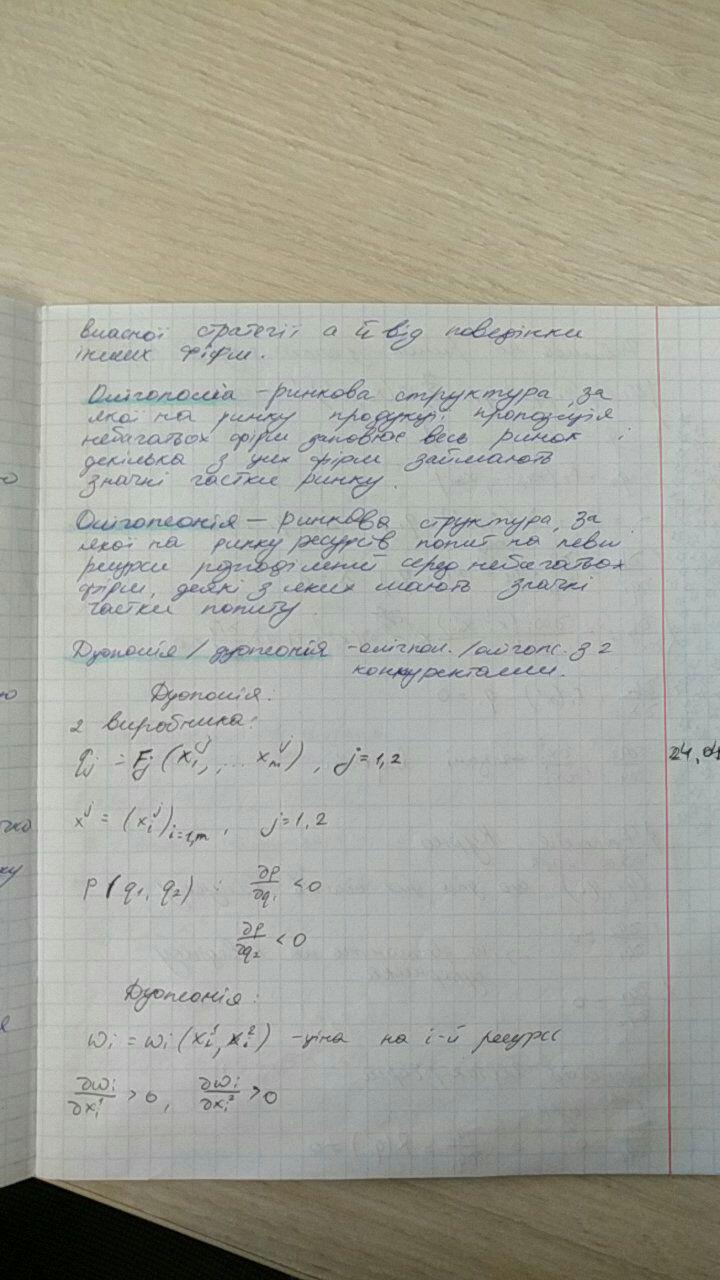 власної стратегії, а й від поведінки
інших фірм.
Олігополія - ринкова структура, за
якої на ринку продукції пропозиція
небагатьох фірм заповнює весь ринок і
декілька з цих фірм займають
значні частки ринку.
Олігопсонія - ринкова структура, за
якої на ринку ресурсів попит на певні
ресурси розподілений серед небагатьох
фірм, деякі з яких мають значні
частки попиту.
Дуополія / дуопсонія - олігпол. / олігопс. з 2
конкурентами.
Дуополія:
2 виробника:
qj = Fj (x₁ʲ, ... xₘʲ), j=1,2
xʲ = (xᵢʲ)i=1,m, j=1,2
P(q₁, q₂): ∂P/∂q₁ < 0
∂P/∂q₂ < 0
Дуопсонія:
ωi = ωi (xᵢ¹, xᵢ²) - ціна на i-й ресурс
∂ωi/∂xᵢ¹ > 0, ∂ωi/∂xᵢ² > 0